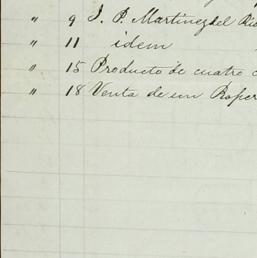 " 9 J. P. Martinez del Rio
" 11 idem
" 15 Producto de cuatro
" 18 Venta de un Roper